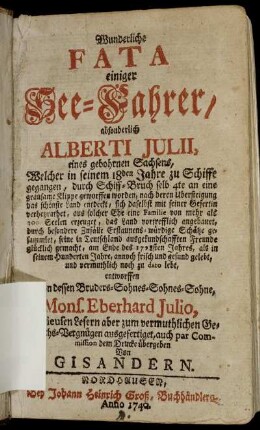 Wunderliche
FATA
einiger
See-Fahrer,
absonderlich
ALBERTI JULII,
eines gebohrnen Sachsens,
Welcher in seinem 18den Jahre zu Schiffe
gegangen, durch Schiff-Bruch selb 4te an eine
grausame Klippe geworffen worden, nach deren Übersteigung
das schönste Land entdeckt, sich daselbst mit seiner Gefertin
verheyrathet, aus solcher Ehe eine Familie von mehr als
Seelen erzeuget, das Land vortrefflich angebauet,
durch besondere Zufälle Erstaunens-würdige Schätze ge-
sammlet, seine in Teutschland ausgekundschafften Freunde
glücklich gemacht, am Ende des Jahres, als in
seinem Hunderten Jahre, annoch frisch und gesund gelebt,
und vermuthlich noch zu dato lebt,
entworffen
dessen Bruders-Sohnes-Sohnes-Sohne,
Mons. Eberhard Julio,
Lesern aber zum vermuthlichen Ge-
-Vergnügen ausgefertiget, auch par Com-
mission dem Drucke übergeben
Von
GISANDERN.
NORDHAUSEN,
Bey Johann Heinrich Groß, Buchhändlern.
Anno 1740.